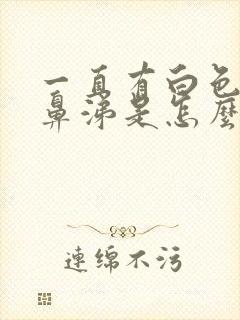 一直有白色
鼻涕是怎麼
連綿不污